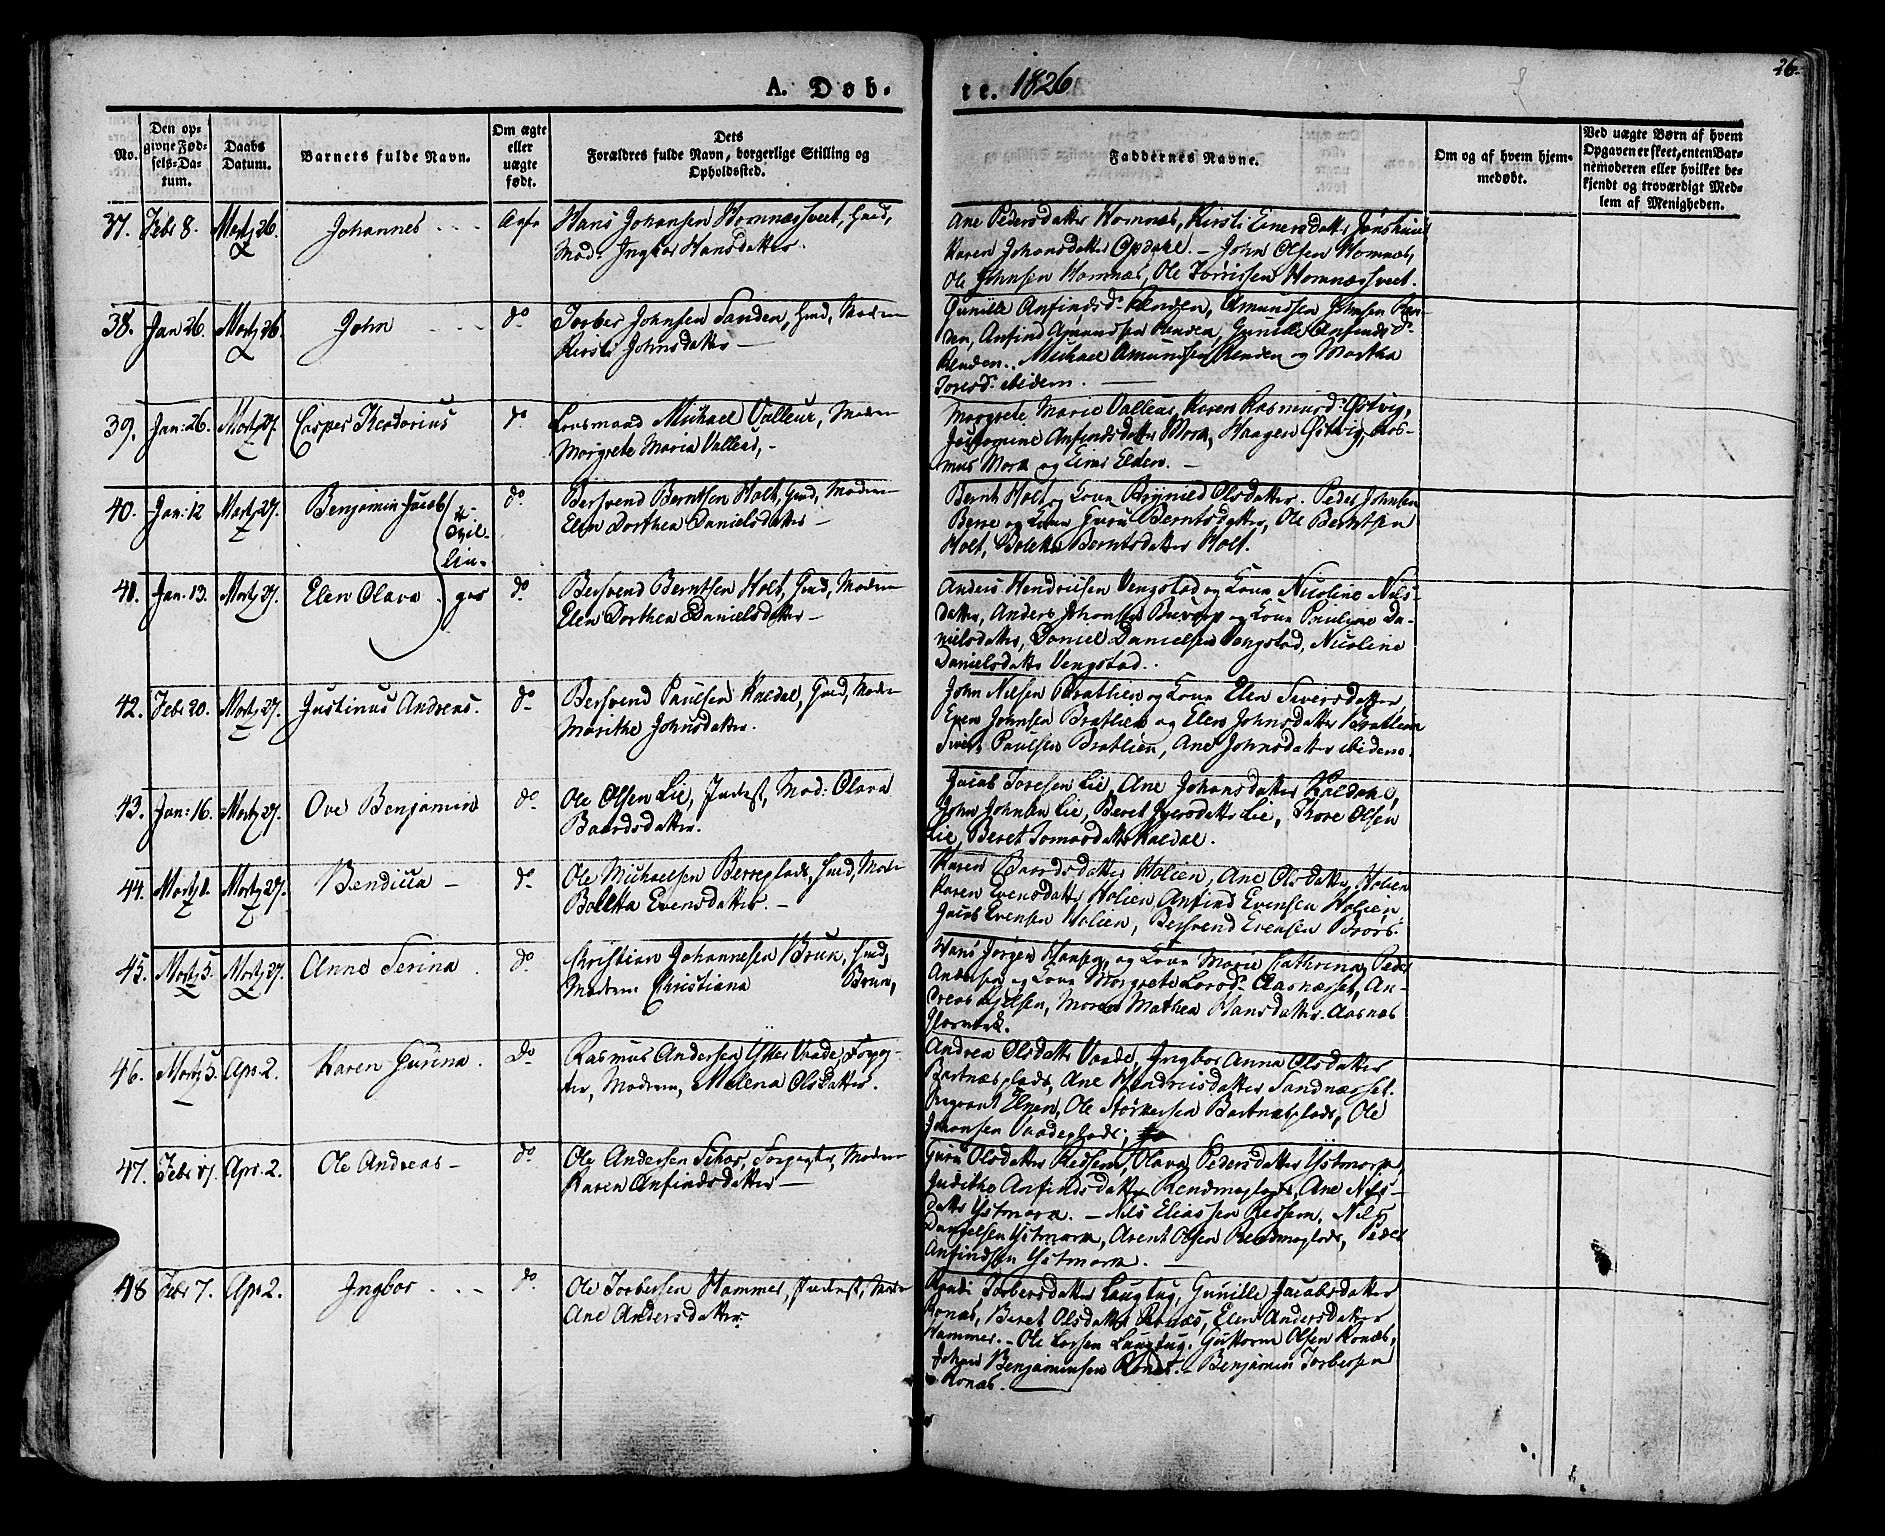 A. Døb-
te. 1826
26.
No.
Den op-
givne Fød-
sels-Da-
tum.
Daabs
Datum.
Barnets fulde Navn.
Om ægte
eller
uægte
født.
Dets
Forældres fulde Navn, borgerlige Stilling og
Opholdssted.
Faddernes Navne.
Om og af hvem hjem-
medøbt.
Ved uægte Børn af hvem
Opgaven er skeet, enten Bar-
nemoderen eller hvilket be-
kjendt og troværdigt Med-
lem af Menigheden.
37. Febr 8. Martz 26. Johannes
Hans Johansen Homnæssveet, Gmd,
Mod: Ingbor Hansdatter.
Ane Pedersdatter Homnæs, Kirsti Einersdatter
Karen Johansdatter Opdahl. – John Olsen Homnæs,
Ole Johnsen Homnæs, Ole Tørrissen Homnæssveet.
38. Jan 26. Martz 26. John do
Torber Johnsen Sanden, Gmd, Modren
Kirsti Johnsdatter –
Gunille Anfindsdr Renden, Amundsen Johnsen Ren-
den, Anfind Amundsen Renden, Gunille Anfindsdr
Renden. Michael Amundsen Renden og Martha
Toresdr ibidem.
39. Jan: 26. Martz 27. Casper Theodorius do
Michael Valleur, Modren
Margrete Maria Valleur, –
Margrete Marie Valleur, Karen Rasmusdr Østvig,
Jacomine Anfindsdatter Morn, Haagen Østvig, Ras-
mus Morn og Einer Elden. –
40. Jan: 12 Martz 27. Benjamin Jacob do
Tvil-
lin-
Bersvend Berntsen Holt, Gmd, Modren
Elen Dorthea Danielsdatter –
Bernt Holt og Kona Brynild Olsdatter. Peder Johnsen
Berre og Kona Guru Berntsdatter, Ole Berntsen
Holt, Boletta Berntsdatter Holt.
41. Jan. 13. Martz 27. Elen Olava. ger do
Bersvend Berntsen Holt, Gmd, Modren
Elen Dorthea Danielsdatter –
Anders Hendricsen Vengstad og Kona Nicoline Nils-
datter, Anders Johansen og Kona Pauline Da-
nielsdatter, Daniel Danielsen Vengstad, Nicoline
Danielsdatter Vengstad.
42. Febr 20. Martz 27. Justinus Andreas. do
Bersvend Paulsen Kaldal, Gmd, Modren
Marithe Johnsdatter.
John Nilsen Bratlien og Kona Elen Siversdatter,
Even Johnsen Bratlien og Elen Johnsdatter Bratlien
Sivert Paulsen Bratlien, Ane Johnsdatter ibidem.
43. Jan: 16. Martz 27. Ove Benjamin do
Ole Olsen Lie, Inderst, Mod: Olava
Baardsdatter.
Jacob Toresen Lie, Ane Johansdatter Kaldahl,
John Johnsen Lie, Beret Iversdatter Lie, Thore Olsen
Lie, Beret Tomasdatter Kaldal.
44. Martz 1. Martz 27. Bendicta – do
Ole Michaelsen Berreplads, Gmd, Modr
Boletta Evensdatter. –
Karen Baardsdatter Holien, Ane Olsdatter Holien
Karen Evensdatter Holien, Anfind Evensen Holien,
Jacob Evensen Holien, Bersvend Evensen
45. Martz 5. Martz 27. Anne Serina. do
Christian Johannesen Brun, Gmd,
Modren Christiana Brun,
Hans Jørgen Hansen og Kona Marie Cathrina, Peder
Andersen og Kona Margrete Larsdr Aasnæsset, An-
dreas Nilsen, Maren Mathea Hansdatter Aasnæs
46. Martz 5. Apr. 2. Karen Gurina. do
Rasmus Andersen Ytter Vaade, Forpag-
ter, Modren, Malena Olsdatter.
Andrea Olsdatter Vaade, Ingbor Anna Olsdatter
Bartnæsplads, Ane Hendricsdatter Sandnæsset.
Elnen, Ole Størkersen Bartnæsplads, Ole
Johansen Vaadeplads,
47. Febr 17. Apr. 2. Ole Andreas – do
Ole Andersen Selvær, Forpagter, Modren
Karen Anfindsdatter –
Guru Olsdatter Ressem, Olava Pedersdatter Ystmorn,
Judithe Anfindsdatter Rendmoplads, Ane Nils-
datter Ystmorn. – Nils Eliassen Ressem, Nils
Danielsen Ystmorn, Arent Olsen Rendmoplads, Peder
Anfindsen Ystmorn.
48 Febr 7. Apr 2. Ingbor do
Ole Torbersen Hammer, Inderst, Modr
Ane Andersdatter.
Randi Torbersdatter Laugtug, Gunille Jacobsdatter
Ronæs, Beret Olsdatter Ronæs, Elen Andersdatter
Hammer. – Ole Larsen Laugtug. Guttorm Olsen Ronæs,
Johan Benjaminsen Ronæs. – Benjamin Torbersen
Ronæs.